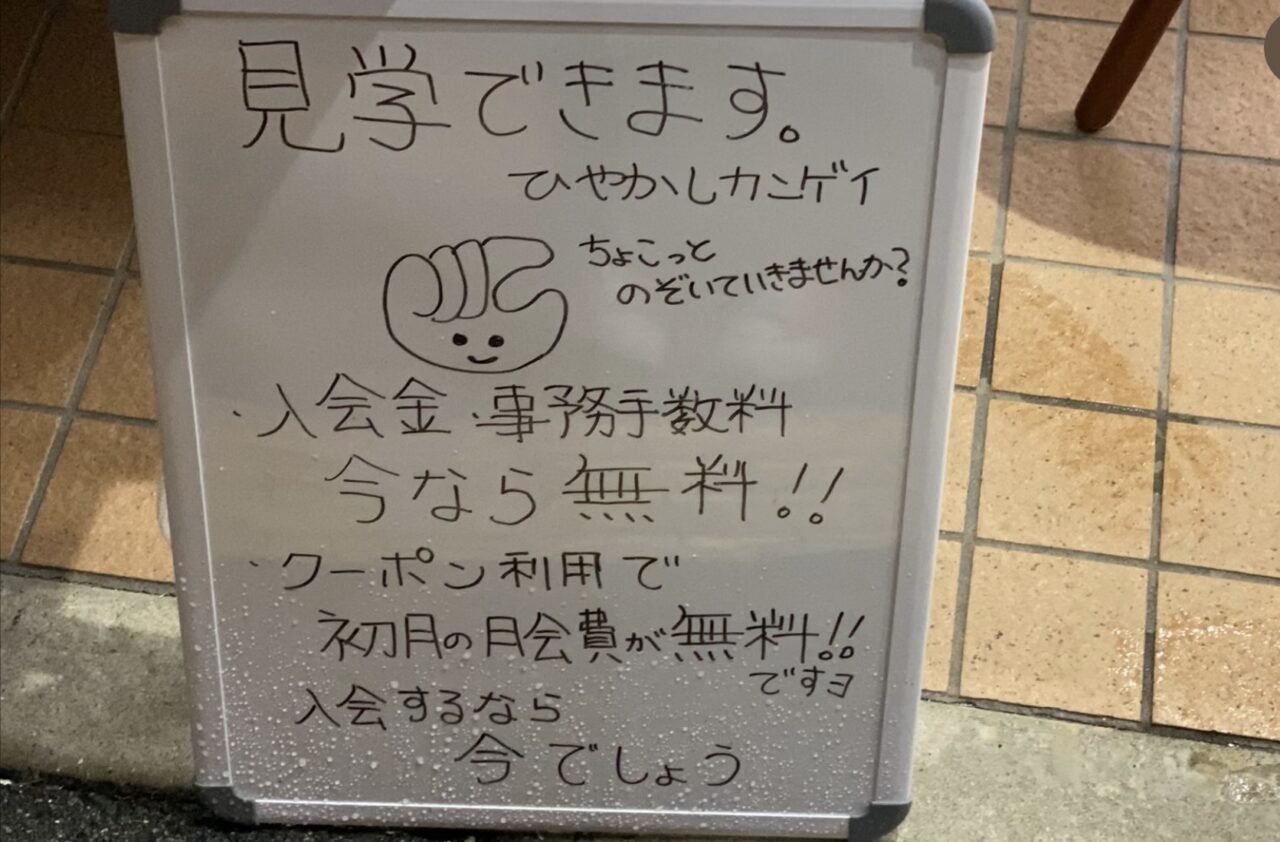 見学できます。
ひやかしカンゲイ
ちょこっと
のぞいていきませんか?
・入会金・事務手数料
今なら無料!!
・クーポン利用で
初月の月会費が無料!!
ですヨ
入会するなら
今でしょう